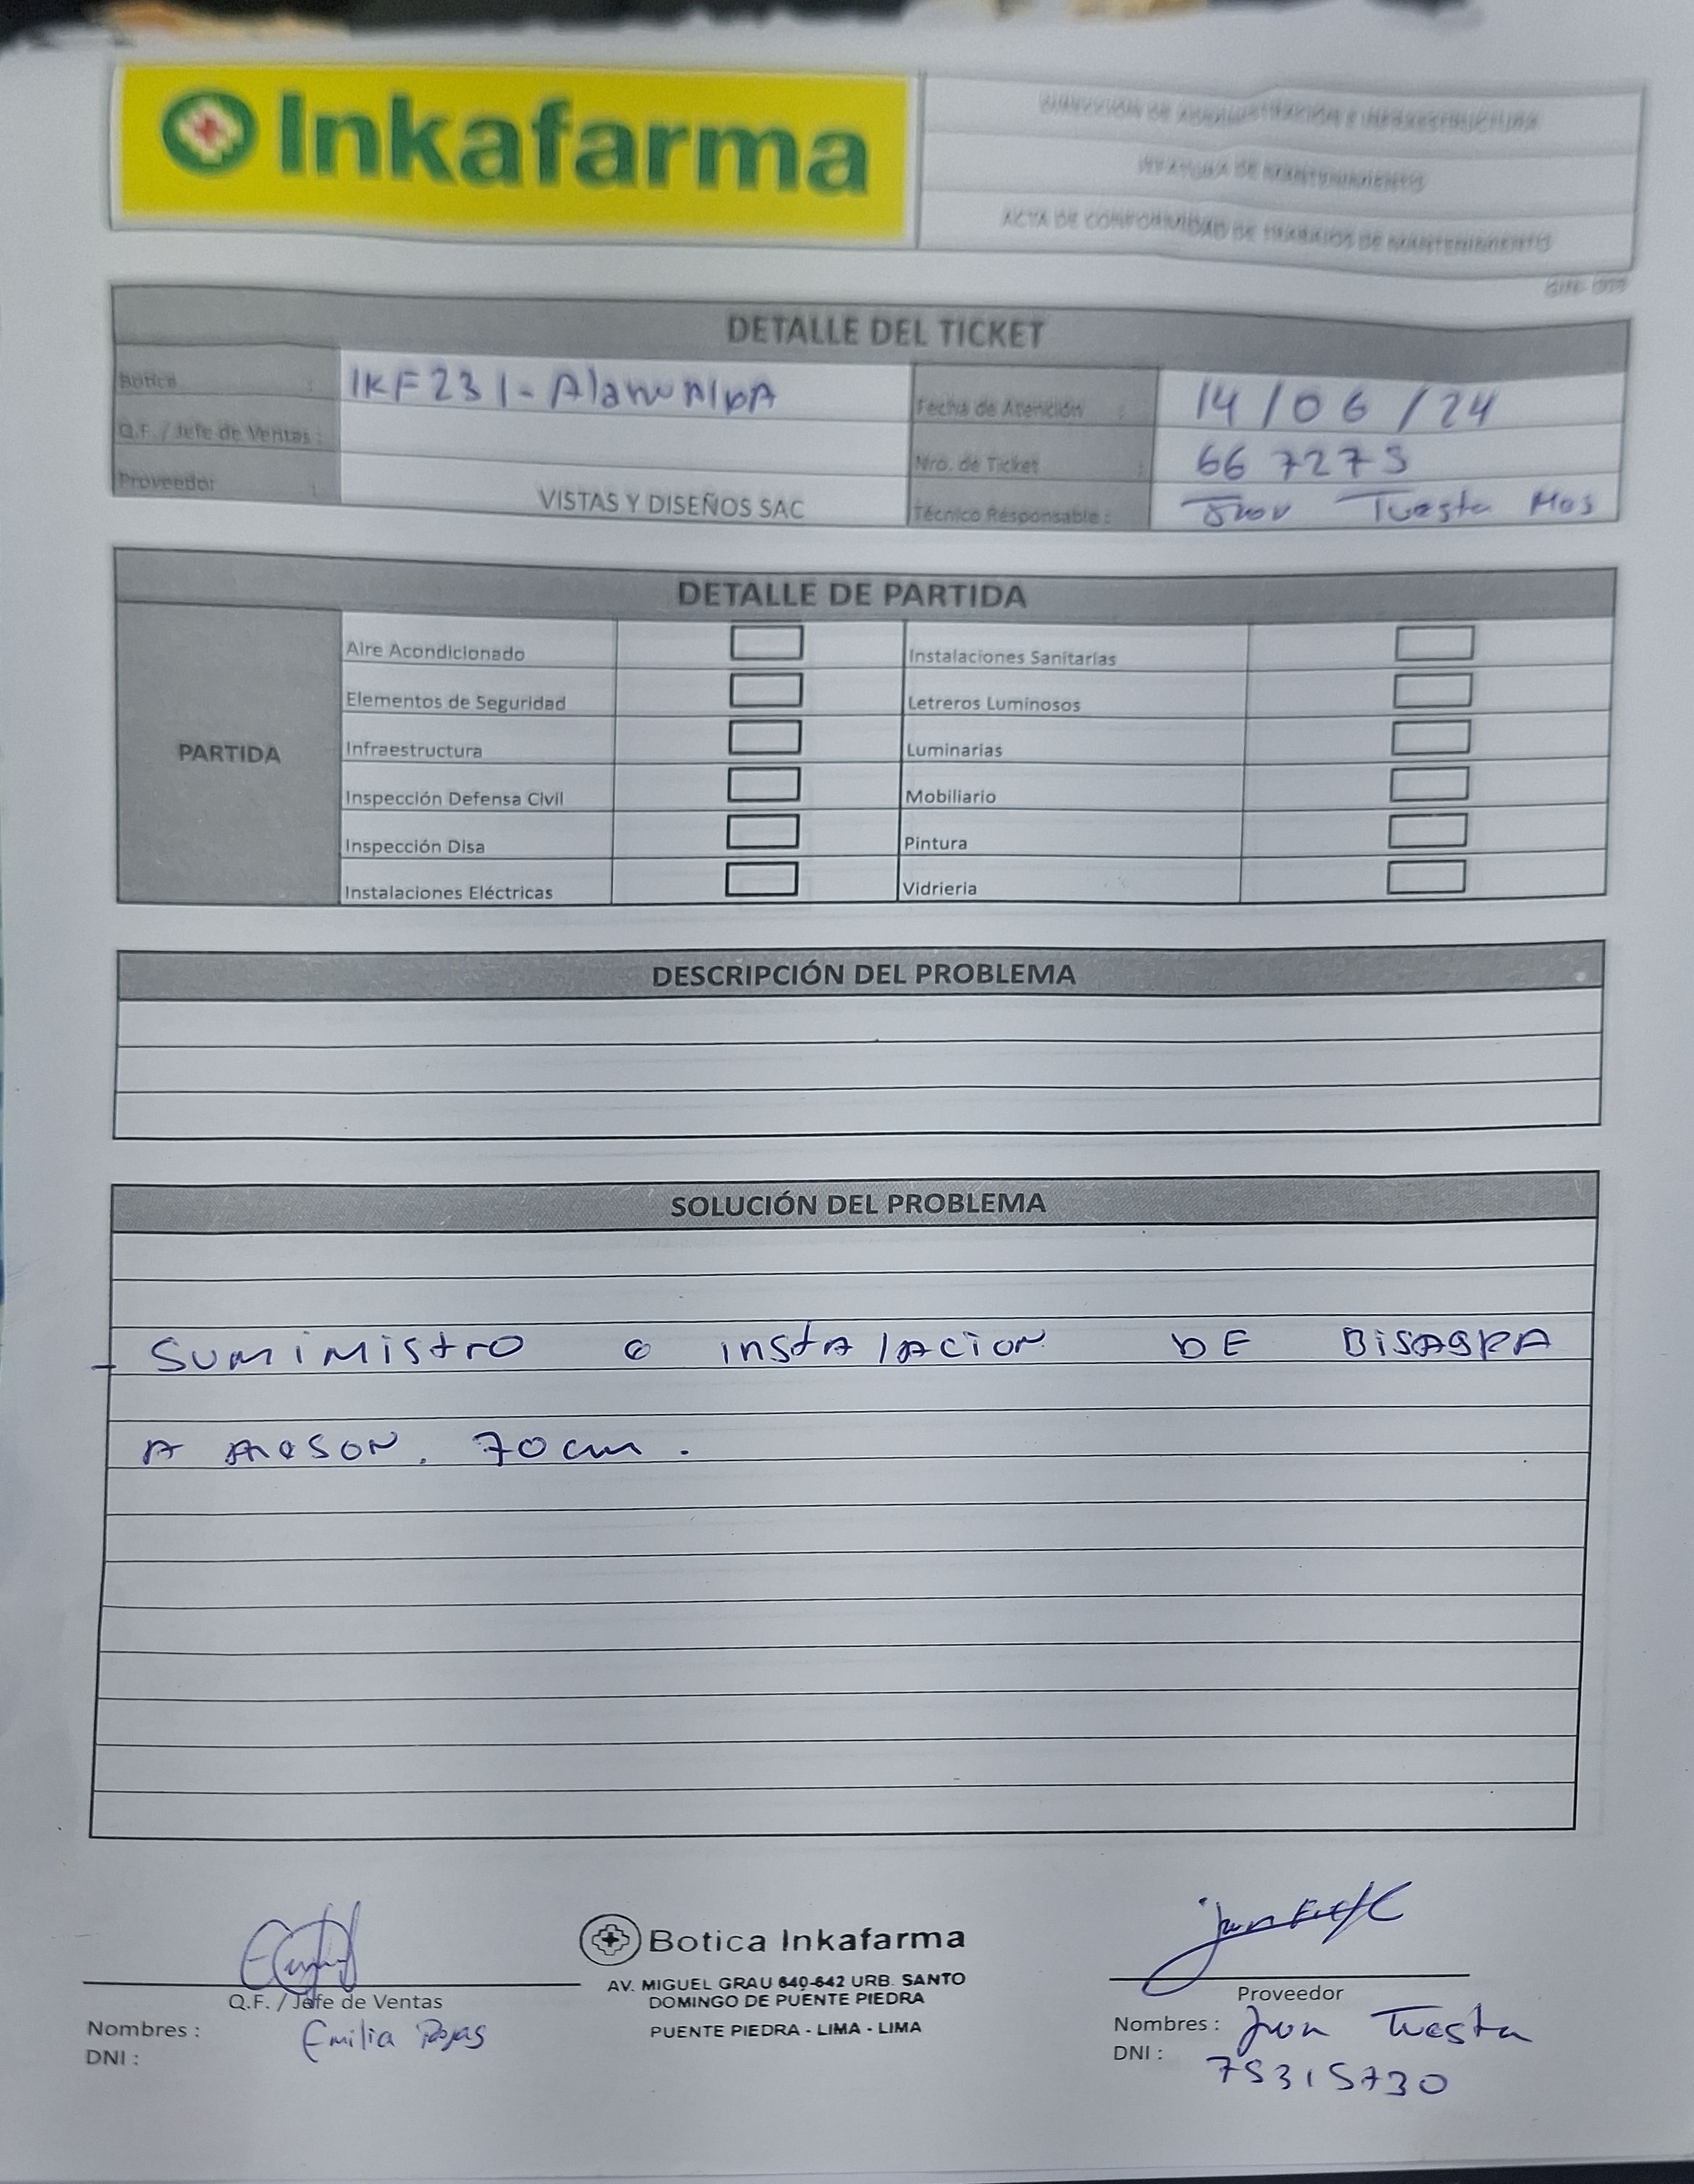 Inkafarma
DIRECCIÓN DE ADMINISTRACIÓN E INFRAESTRUCTURA
JEFATURA DE MANTENIMIENTO
ACTA DE CONFORMIDAD DE TRABAJOS DE MANTENIMIENTO
DETALLE DEL TICKET
Botica : IKF231-
Fecha de Atención : 14/06/24
Q.F. / Jefe de Ventas :
Nro. de Ticket : 667275
Proveedor : VISTAS Y DISEÑOS SAC
Técnico Responsable : Tuesta
DETALLE DE PARTIDA
PARTIDA
Aire Acondicionado Instalaciones Sanitarias
Elementos de Seguridad Letreros Luminosos
Infraestructura Luminarias
Inspección Defensa Civil Mobiliario
Inspección Disa Pintura
Instalaciones Eléctricas Vidrieria
DESCRIPCIÓN DEL PROBLEMA
SOLUCIÓN DEL PROBLEMA
- SUMIMIStrO e INStAlACION DE BiSAGRA
A MeSON. 70 cm.
Botica Inkafarma
AV. MIGUEL GRAU 640-642 URB. SANTO
DOMINGO DE PUENTE PIEDRA
PUENTE PIEDRA - LIMA - LIMA
Q.F. / Jefe de Ventas
Nombres : Emilia Rojas
DNI :
Proveedor
Nombres : Tuesta
DNI : 75315730